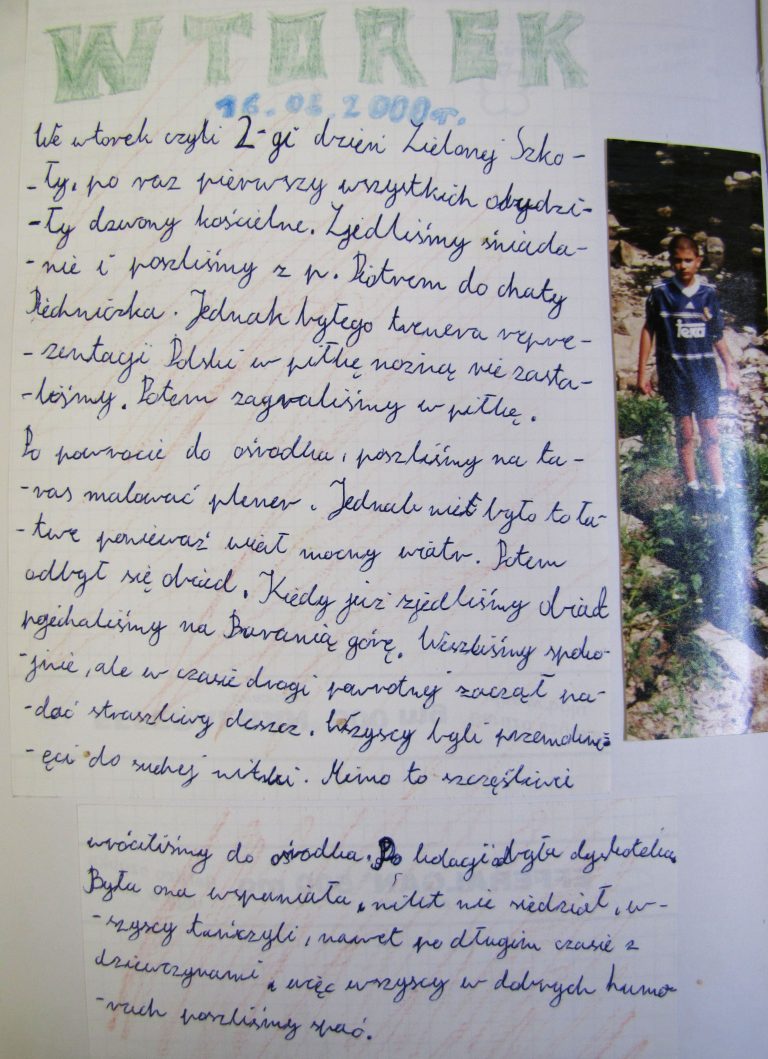 WTOREK
16.05.2000r.
We wtorek czyli 2-gi dzień Zielonej Szko-
-ły, po raz pierwszy wszystkich obudzi-
-ły dzwony kościelne. Zjedliśmy śniada-
-nie i poszliśmy z p. Piotrem do chaty
Piechniczka. Jednak byłego trenera repre-
-zentacji Polski w piłkę nożną nie zasta-
-liśmy. Potem zagraliśmy w piłkę.
Po powrocie do ośrodka, poszliśmy na ta-
-ras malować plener. Jednak nie było to ła-
-twe ponieważ wiał mocny wiatr. Potem
odbył się obiad. Kiedy już zjedliśmy obiad
pojechaliśmy na Baranią górę. Weszliśmy spoko-
-jnie, ale w czasie drogi powrotnej zaczął pa-
-dać straszliwy deszcz. Wszyscy byli przemoknię-
-ęci do suchej nitki. Mimo to szczęśliwi
wróciliśmy do ośrodka. Po kolacji była dyskoteka.
Była ona wspaniała, nikt nie siedział, w-
-szyscy tańczyli, nawet po długim czasie z
dziewczynami, więc wszyscy w dobrych humo-
-rach poszliśmy spać.
teka